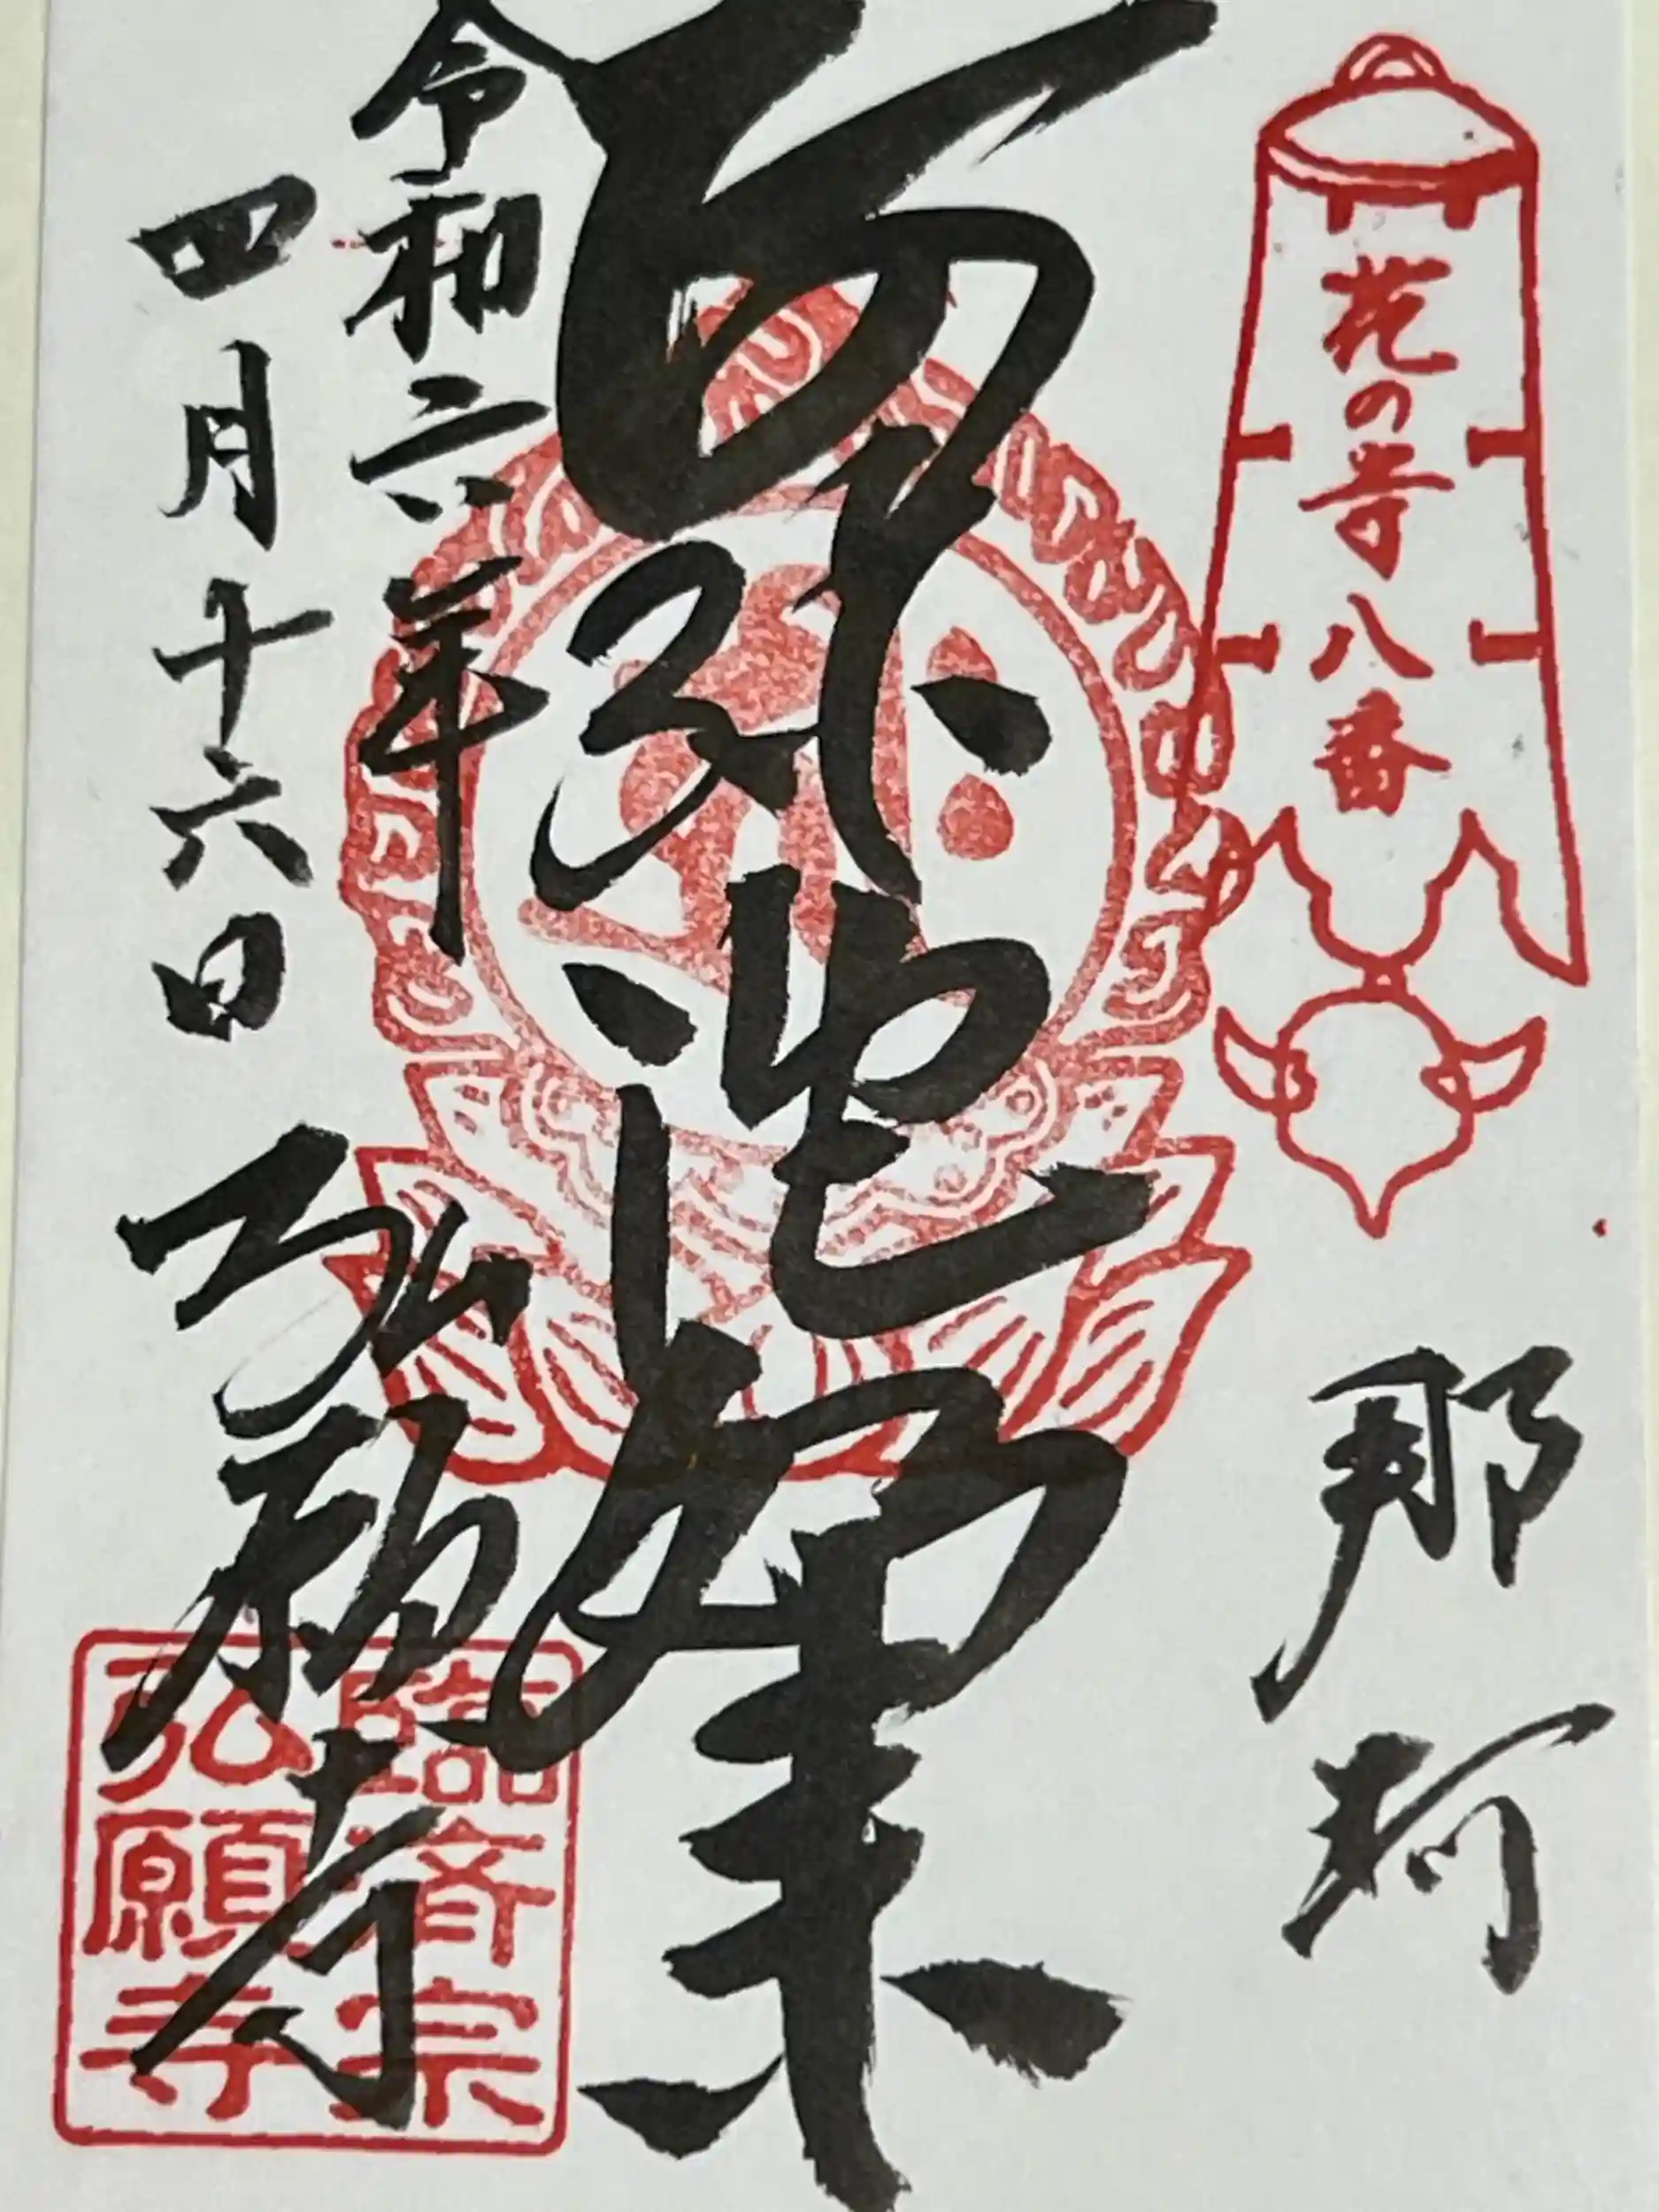 花の寺八番
那珂
阿弥陀如来
令和六年
四月十六日 弘願寺
臨済宗
弘願寺